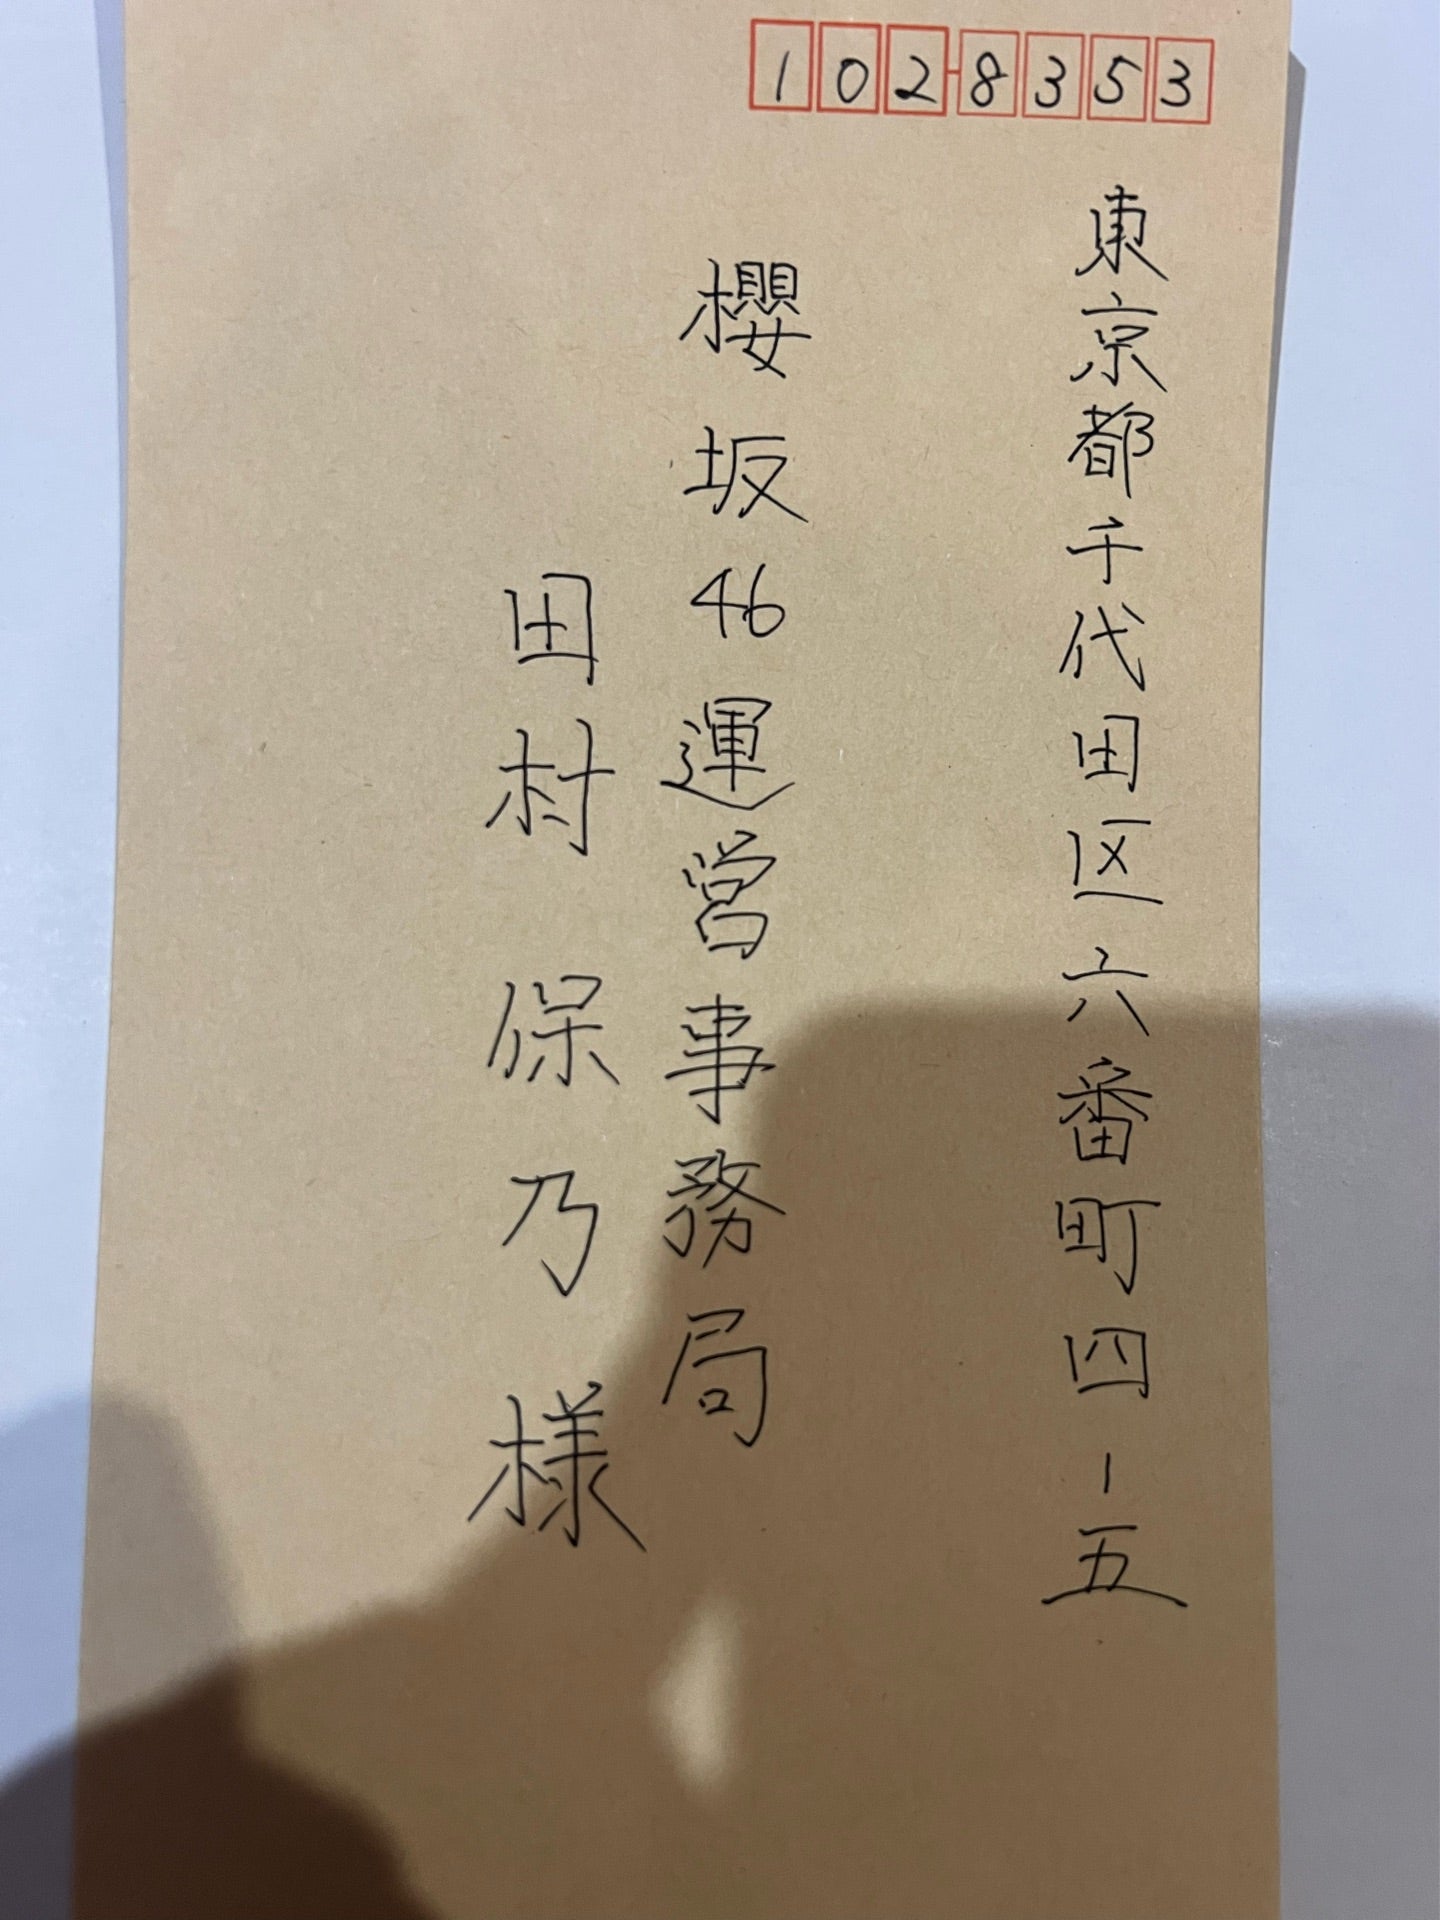 102-8353
東京都千代田区六番町四-五
櫻坂46運営事務局
田村 保乃 様